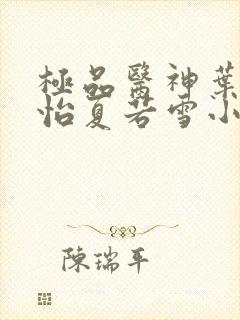 極品醫神葉
怡夏若雪小
陳瑞平